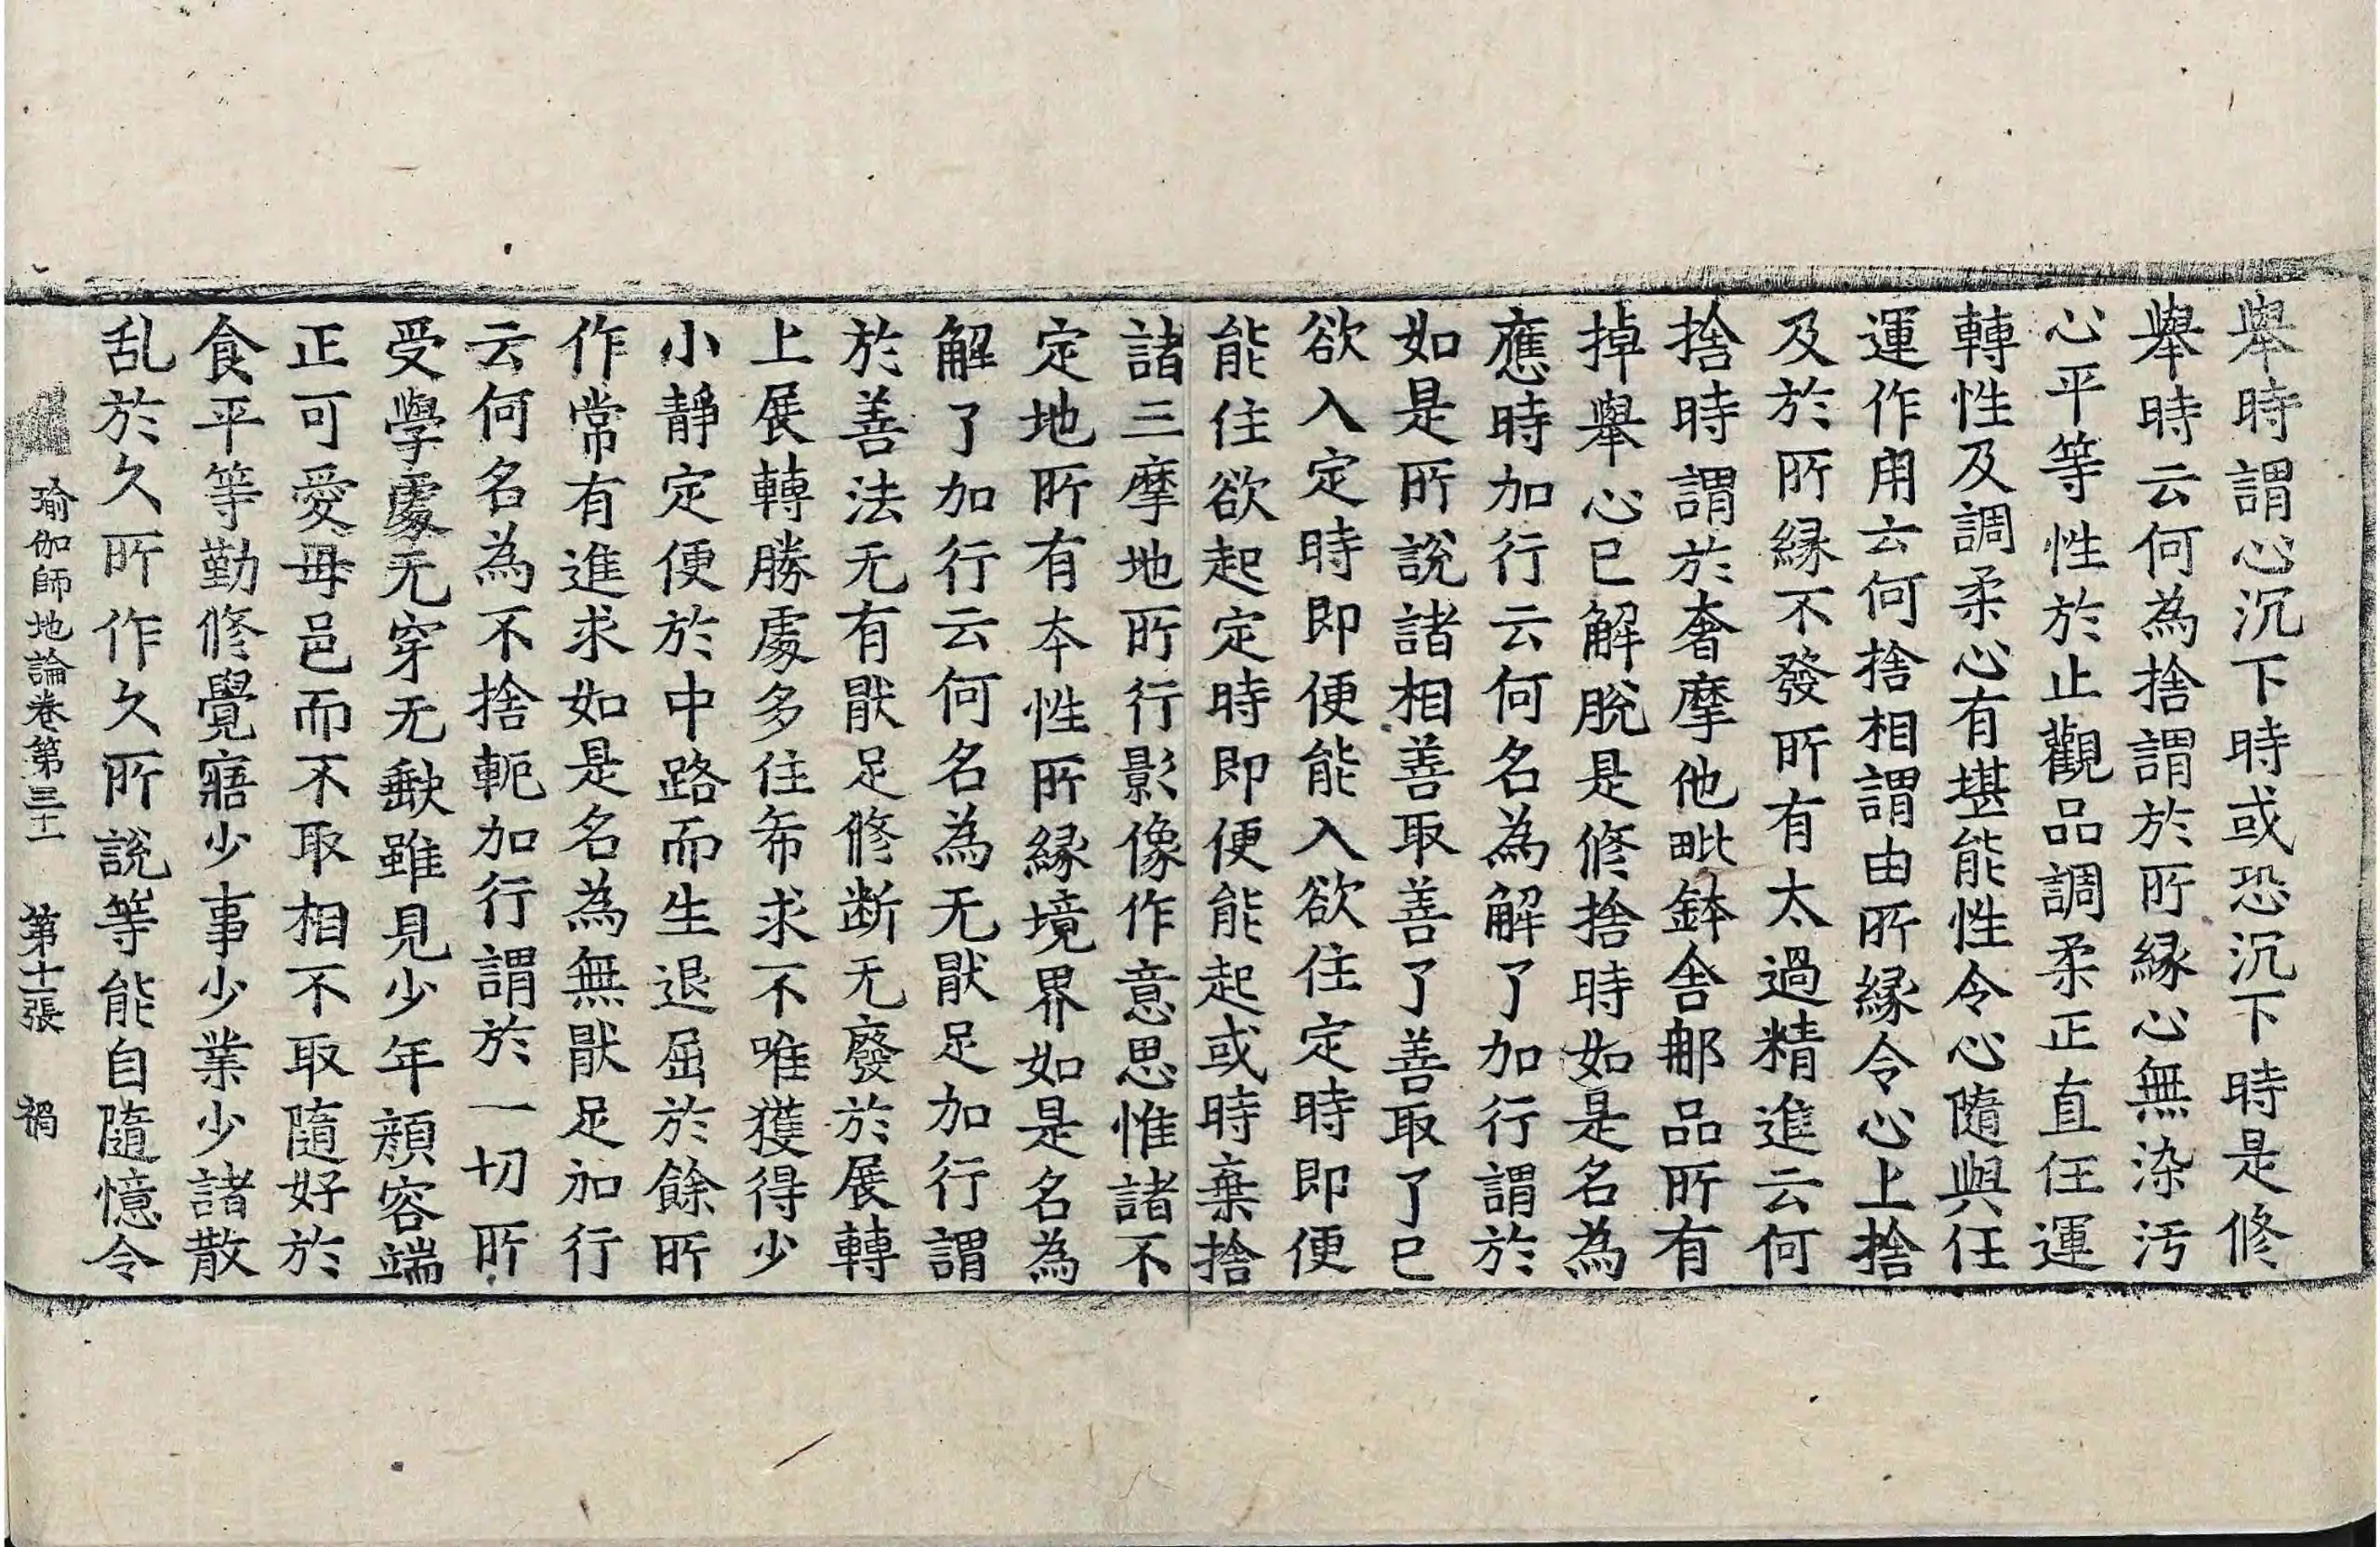 舉時謂心沉下時或恐沉下時是修
舉時云何為捨謂於所緣心無染汚
心平等性於止觀品調柔正直任運
轉性及調柔心有堪能性令心隨與任
運作用云何捨相謂由所緣令心上捨
及於所緣不發所有太過精進云何
捨時謂於奢摩他毗鉢舍那品所有
掉舉心已解脫是修捨時如是名為
應時加行云何名為解了加行謂於
如是所說諸相善取善了善取了已
欲入定時即便能入欲住定時即便
能住欲起定時即便能起或時棄捨
諸三摩地所行影像作意思惟諸不
定地所有本性所緣境界如是名為
解了加行云何名為无猒足加行謂
於善法无有猒足修断无廢於展轉
上展轉勝處多住希求不唯獲得少
小靜定便於中路而生退屈於餘所
作常有進求如是名為無猒足加行
云何名為不捨軛加行謂於一切所
受學處无穿无缺雖見少年顏容端
正可愛母邑而不取相不取隨好於
食平等勤修覺寤少事少業少諸散
乱於久所作久所說等能自隨憶令
瑜伽師地論卷第三十一 第十張 禍